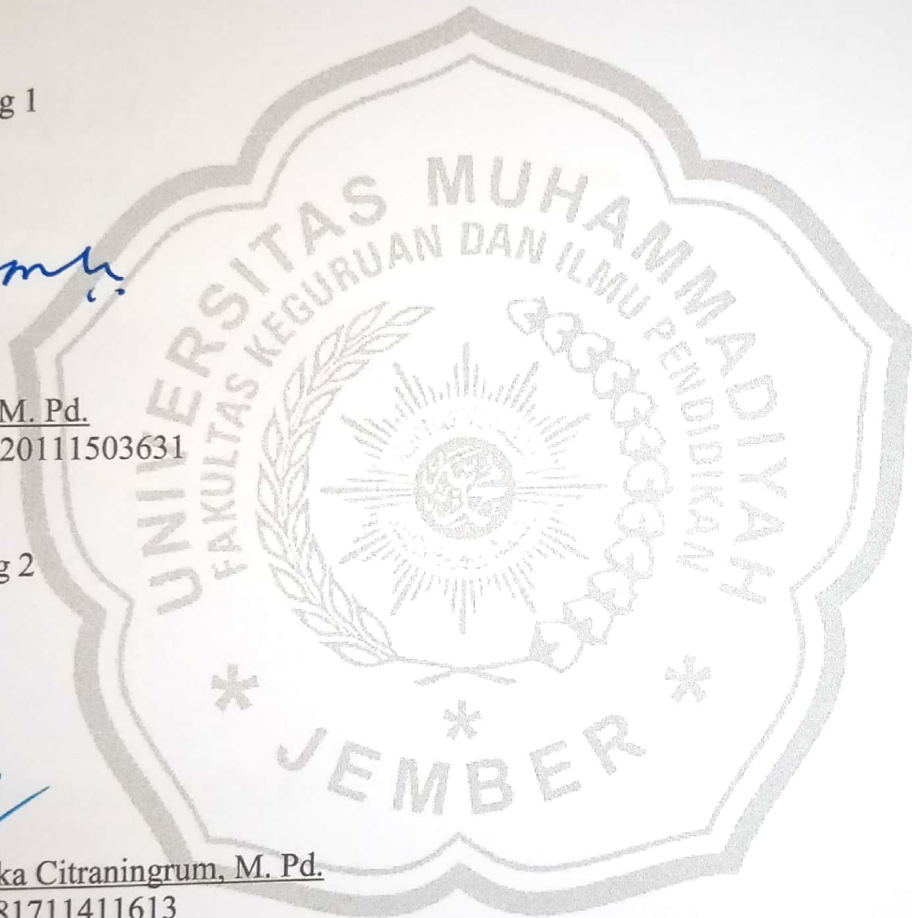 g 1
M. Pd.
20111503631
g 2
ka Citraningrum, M. Pd.
81711411613
UNIVERSITAS MUHAMMADIYAH
FAKULTAS KEGURUAN DAN ILMU PENDIDIKAN
* JEMBER *